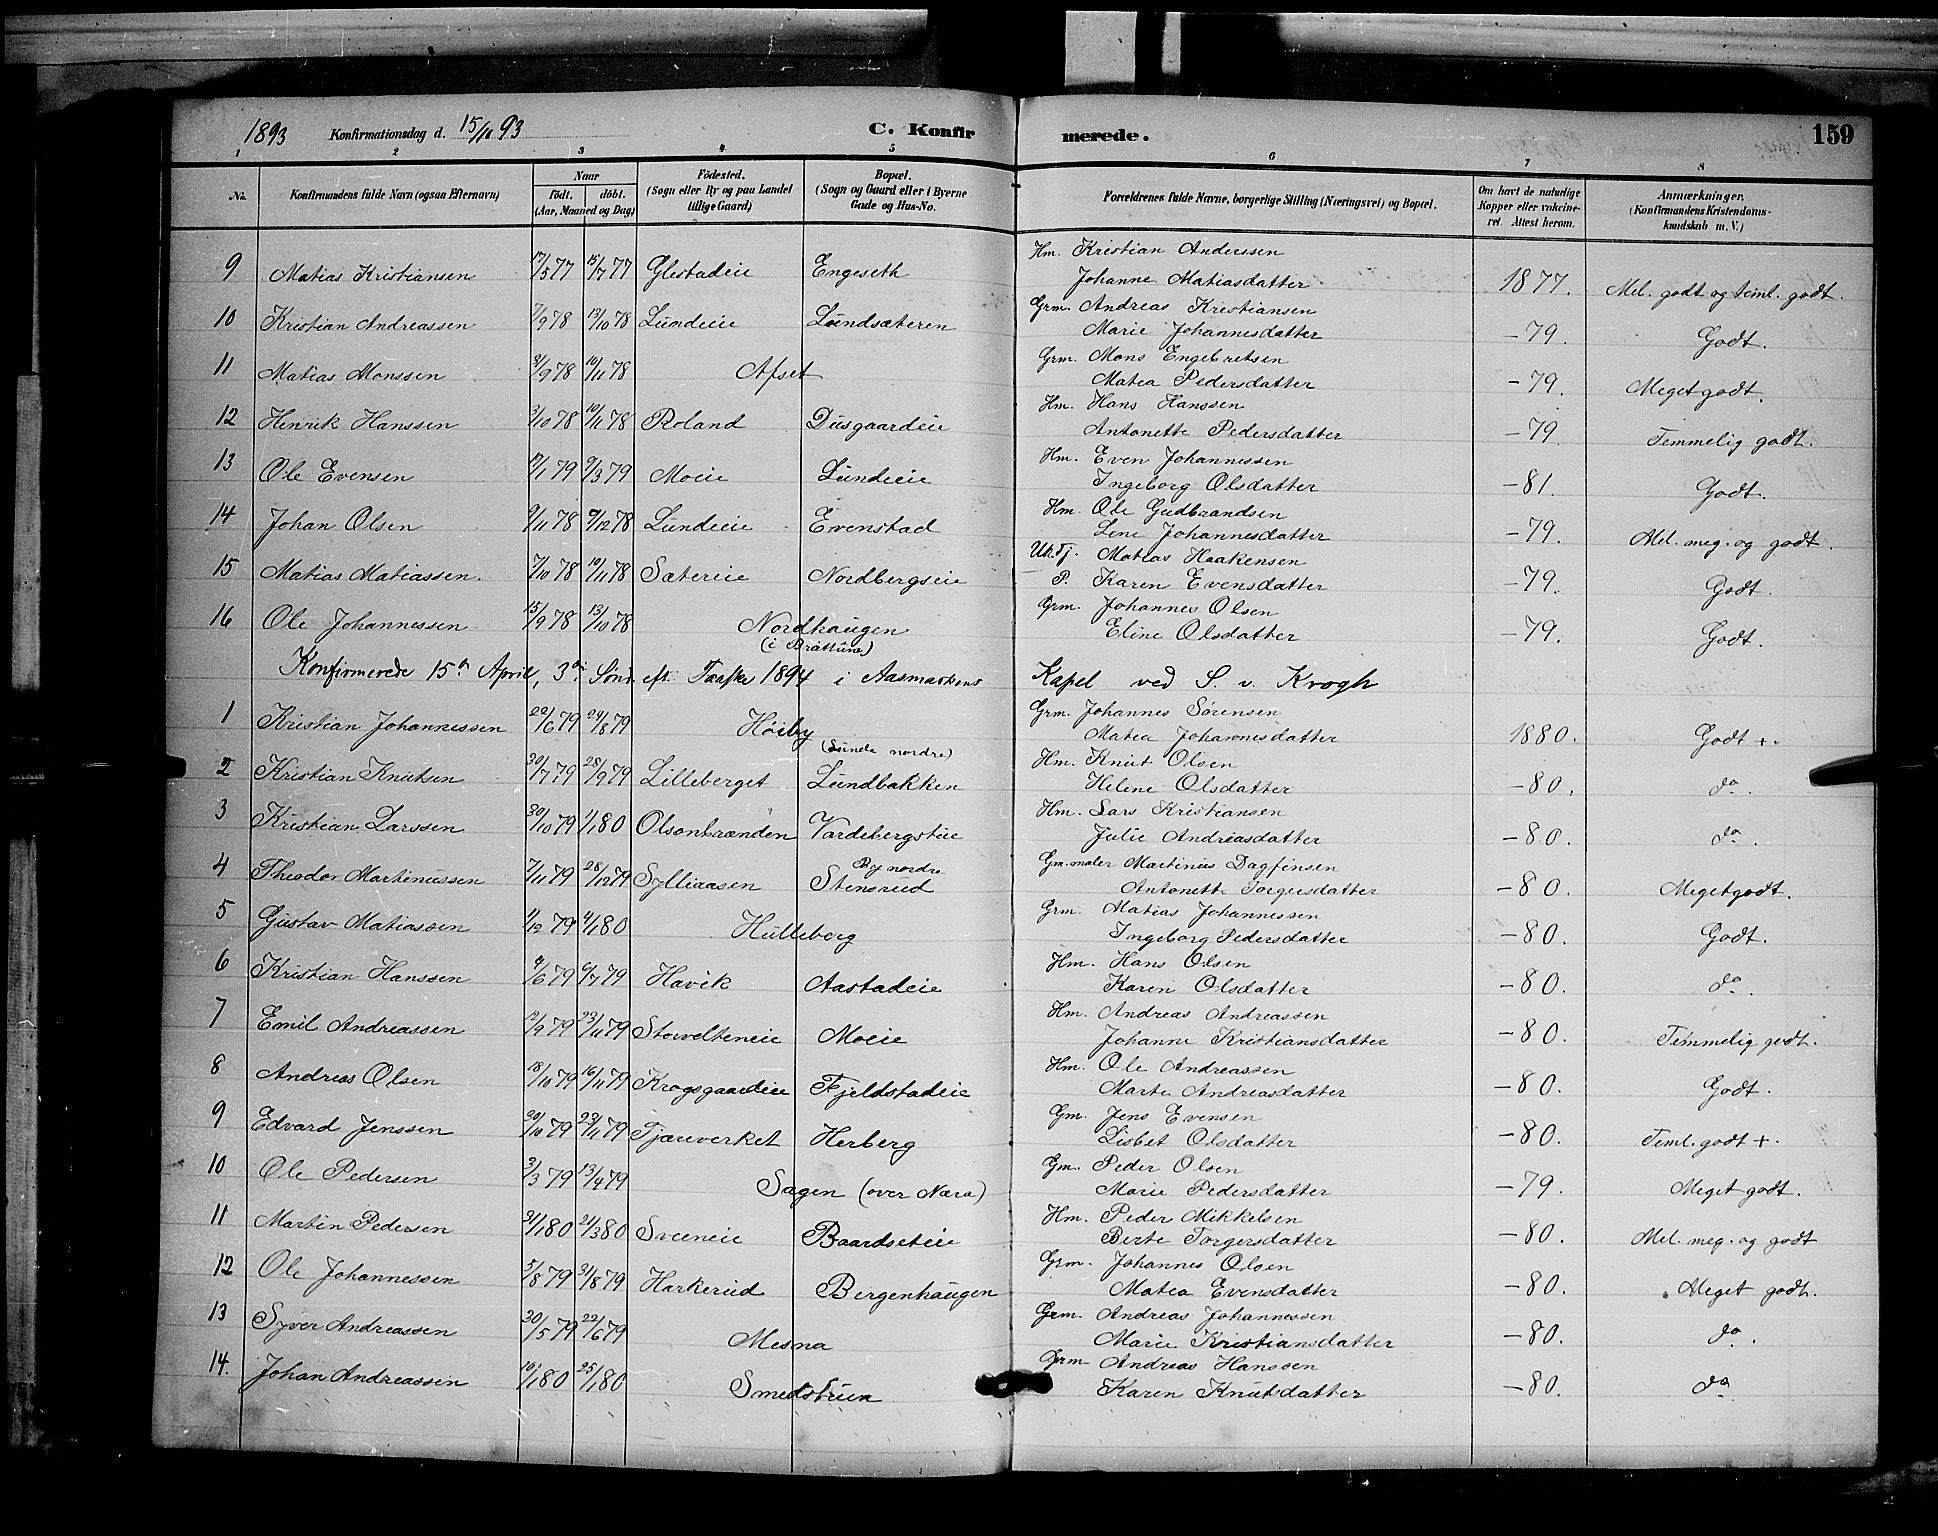 1893 Konfirmationsdag d. 15/10 93 C. Konfirmerede. 159
1 2 3 4 5 6 7 8
No. Konfirmandens fulde Navn (ogsaa Efternavn) Naar født. døbt. (Aar, Maaned og Dag) Födested. (Sogn eller By og paa Landet tillige Gaard) Bopæl. (Sogn og Gaard eller i Byerne Gade og Hus-No. Forældrenes fulde Navne, borgerlige Stilling (Næringsvei) og Bopæl. Om havt de naturlige Kopper eller vakcineret. Attest herom. Anmærkninger. (Konfirmandens Kristendomskundskab m. V.)
9 Matias Kristiansen 17/5 77 15/7 77 Glestadeie Engeseth Hm. Kristian Anderssen
Johanne Matiasdatter 1877. Mel. godt og teml. godt.
10 Kristian Andreassen 7/9 78 13/10 78 Lundeie Lundsæteren Grm. Andreas Kristiansen
Marie Johannesdatter -79. Godt.
11 Matias Monssen 21/9 78 10/11 78 Afset Grm. Mons Engebretsen
Matea Pedersdatter -79. Meget godt.
12 Henrik Hanssen 3/10 78 10/11 78 Roland Dusgaardeie Hm. Hans Hanssen
Antonette Pedersdatter -79 Temmelig godt.
13 Ole Evensen 17/1 79 9/3 79 Moeie Lundeie Hm. Even Johannessen
Ingeborg Olsdatter -81. Godt.
14 Johan Olsen 9/11 78 9/12 78 Lundeie Evenstad Hm. Ole Gudbrandsen
Lene Johannesdatter -79. Mel. meg. og godt.
15 Matias Matiassen. 7/10 78 10/11 78 Sætereie Nordbergseie Uk. Tj. Matias Haakensen
P. Karen Evensdatter -79. Godt.
16 Ole Johannessen 15/9 78 13/10 78 Nordhaugen Grm. Johannes Olsen
(i Brøttum) Eline Olsdatter -79. Godt.
Konfirmerede 15de April, 3die Sønd. eft. Paaske 1894 i Aasmarkens Kapel ved S. v. Krogh
1 Kristian Johannessen 22/6 79 24/8 79 Höiby Grm. Johannes Sørensen
Matea Johannesdatter 1880. Godt +.
(Lunde nordre)
2 Kristian Knutsen 30/7 79 28/9 79 Lilleberget Lundbakken Hm. Knut Olsen
Helene Olsdatter -80. do.
3 Kristian Larssen 30/10 79 1/1 80 Olsonbrænden Vardebergseie Hm. Lars Kristiansen
Julie Andreasdatter -80. do.
By nordre
4 Theodor Martinussen 7/11 79 28/12 79 Sylliaasen Stensrud Gm. maler Martinus Dagfinsen
Antonette Torgersdatter -80. Meget godt.
5 Gustav Matiassen 1/12 79 4/1 80 Hulleberg Grm. Matias Johannessen
Ingeborg Pedersdatter -80. Godt.
6 Kristian Hanssen 4/6 79 6/7 79 Havik Aastadeie Hm. Hans Olsen
Karen Olsdatter -80. do.
7 Emil Andreassen 12/9 79 23/11 79 Storvelteneie Moeie Hm. Andreas Andreassen
Johanne Kristiansdatter -80. Temmelig godt.
8 Andreas Olsen 18/10 79 16/11 79 Krogsgaardeie Fjeldstadeie Hm. Ole Andreassen
Marte Andreasdatter -80. Godt.
9 Edvard Jenssen 20/10 79 23/11 79 Tjæreverket Herberg Gm. Jens Evensen
Lisbet Olsdatter -80. Teml. godt +.
10 Ole Pedersen 3/3 79 13/4 79 Sagen (over Næra) Gm. Peder Olsen
Marie Pedersdatter -79. Meget godt.
11 Martin Pedersen 31/1 80 21/3 80 Sveeneie Baardseteie Hm. Peder Mikkelsen
Berte Torgersdatter -80. Mel. meg. og godt
12 Ole Johannessen 5/8 79 31/8 79 Harkerud Bergenhaugen Grm. Johannes Olsen
Matea Evensdatter -80. Meget godt.
13 Syver Andreassen 20/5 79 22/6 79 Mesna Grm. Andreas Johannessen
Marie Kristiansdatter -80. do.
14. Johan Andreassen 10/1 80 25/1 80 Smedstuen Grm Andreas Hanssen
Karen Knutsdatter -80. do